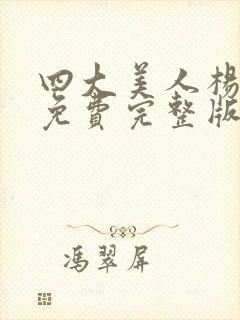 四大美人楊
免費完整版
馮翠屏